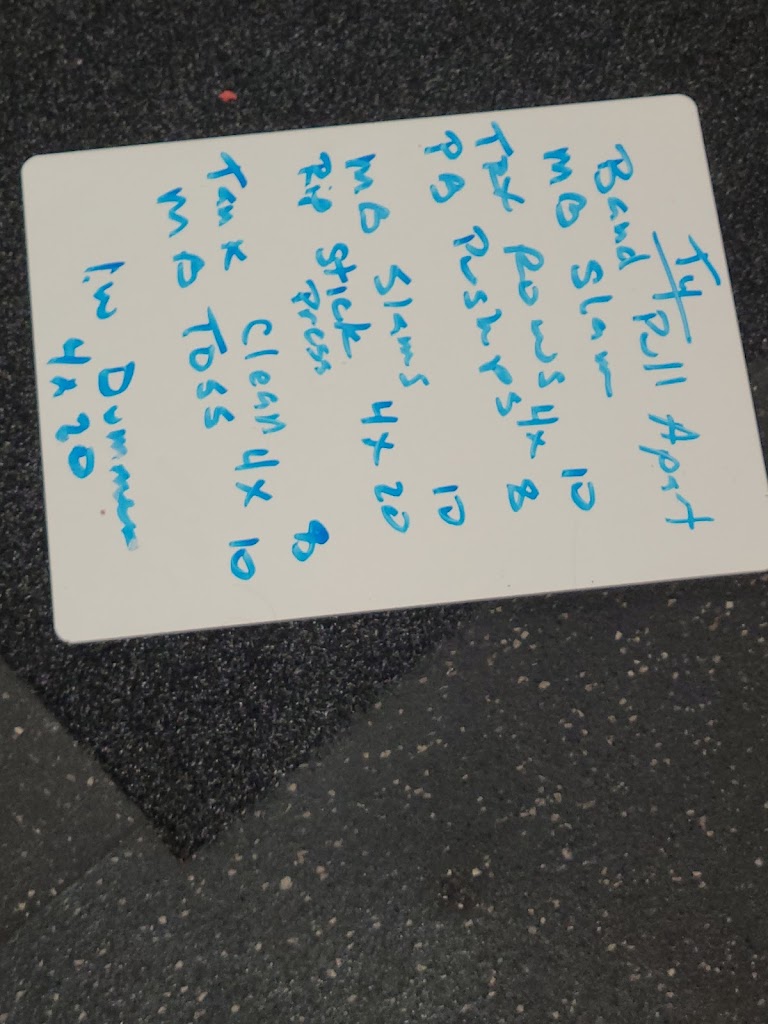 Ty
Band Pull Apart
MB Slam 10
TRX Rows 4x 8
PB Pushups 10
MB Slams 4x20
Rip Stick Press 8
Tank Clean 4x 10
MB Toss
4x20